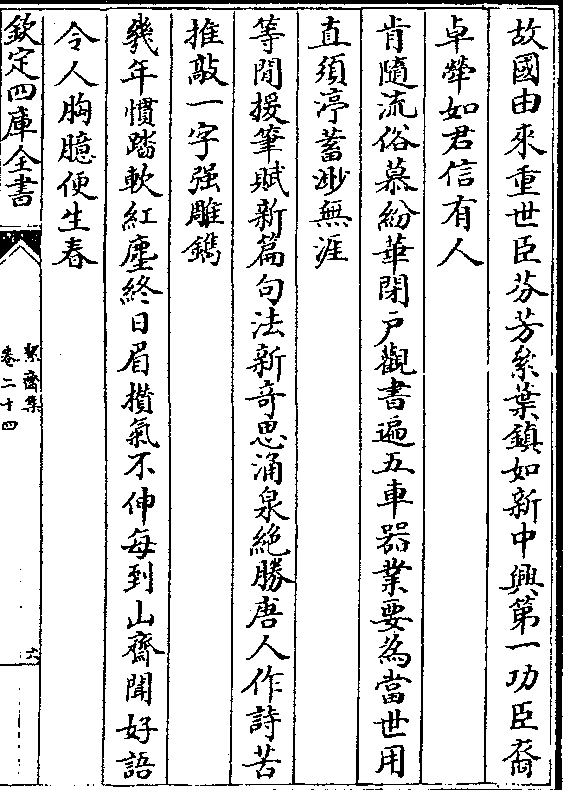 故國由來重世臣芬芳系葉鎮如新中興第一功臣裔
卓犖如君信有人
肯隨流俗慕紛華閉戸觀書遍五車器業要為當世用
直須渟蓄渺無涯
等閒援筆賦新篇句法新奇思涌泉絶勝唐人作詩苦
推敲一字强雕鐫
幾年慣踏軟紅塵終日眉攢氣不伸每到山齋聞好語
令人胸臆便生春
欽定四庫全書
絜齋集
卷二十四
六